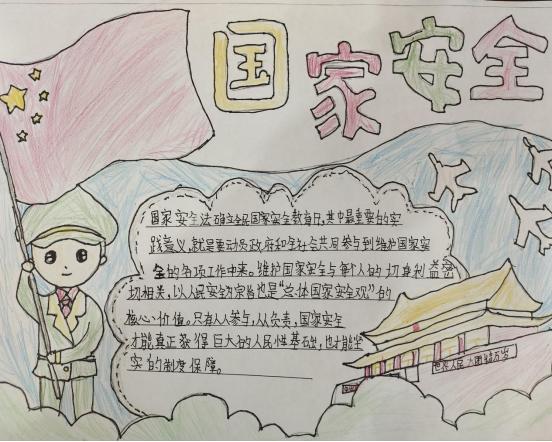 国家安全
国家安全法确立全民国家安全教育日,其中最重要的实
践意义,就是要动员政府和全社会共同参与到维护国家安
全的各项工作中来。维护国家安全与每个人的切身利益密
切相关,以人民安全为宗旨也是“总体国家安全观”的
核心价值。只有人人参与,人人负责,国家安全
才能真正获得巨大的人民性基础,也才能坐
实的制度保障。
世界人民大团结万岁